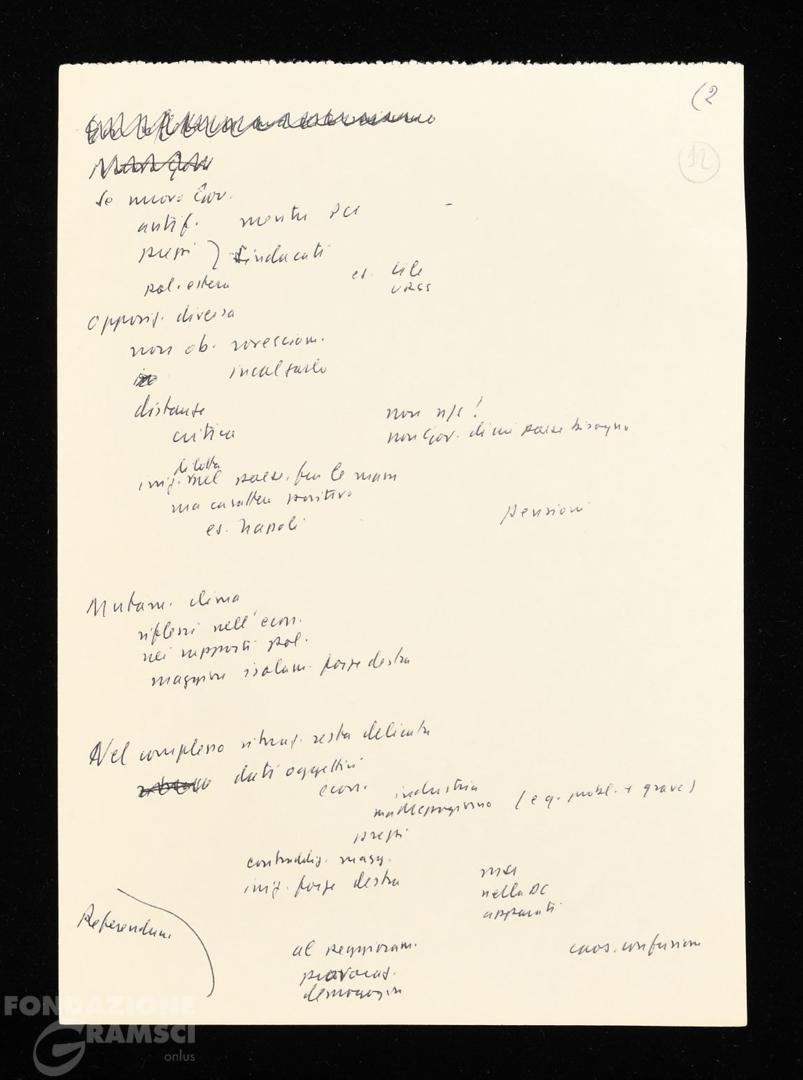 (2
12
Se nuovo Gov.
antif. mentre PCI
prezzi } Sindacati
pol. estera es. Cile
URSS
Opposiz. diversa
non ob. rovesciam.
incalzarlo
distanze non n/c!
critica non Gov. di cui paese bisogno
di lotta
iniz. nel paese, fra le masse
ma carattere positivo
es. Napoli pensioni
Mutam. clima
riflessi nell'econ.
nei rapporti pol.
maggiore isolam. forze destra
Nel complesso situaz. resta delicata
dati oggettivi
econ. industria
Mezzogiorno (e q. probl. + grave)
prezzi
contraddiz. magg.
iniz. forze destra MSI
nella DC
apparati
Referendum
al peggioram. caos, confusione
provocaz.
demagogia
FONDAZIONE
GRAMSCI
onlus